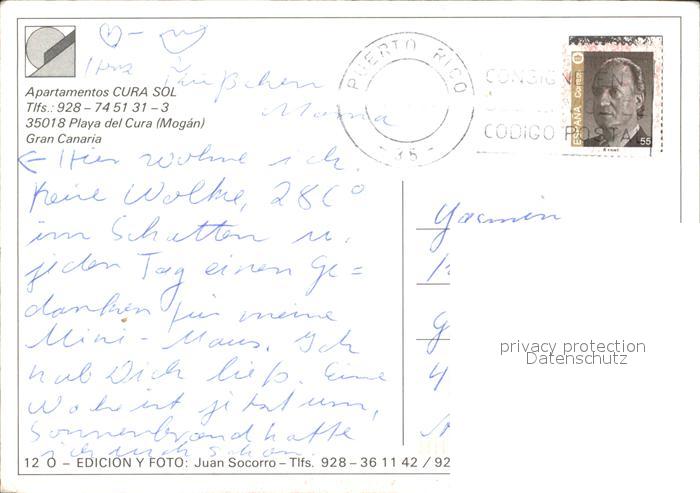 Küßchen
Mama
Apartamentos CURA SOL
Tlfs.: 928 – 74 51 31 – 3
35018 Playa del Cura (Mogán)
Gran Canaria
PUERTO RICO
- 35 -
CONSIGNE EN
CODIGO POSTA
ESPAÑA Correos
55
← Hier wohne ich.
Keine Wolke, 28 C°
im Schatten u.
jeden Tag einen Ge=
danken für meine
Mini-Maus. Ich
hab Dich lieb. Eine
Woche ist jetzt um,
Sonnenbrand hatte
ich auch schon.
Yasmin
privacy protection
Datenschutz
12 O – EDICION Y FOTO: Juan Socorro – Tlfs. 928 – 36 11 42 / 92